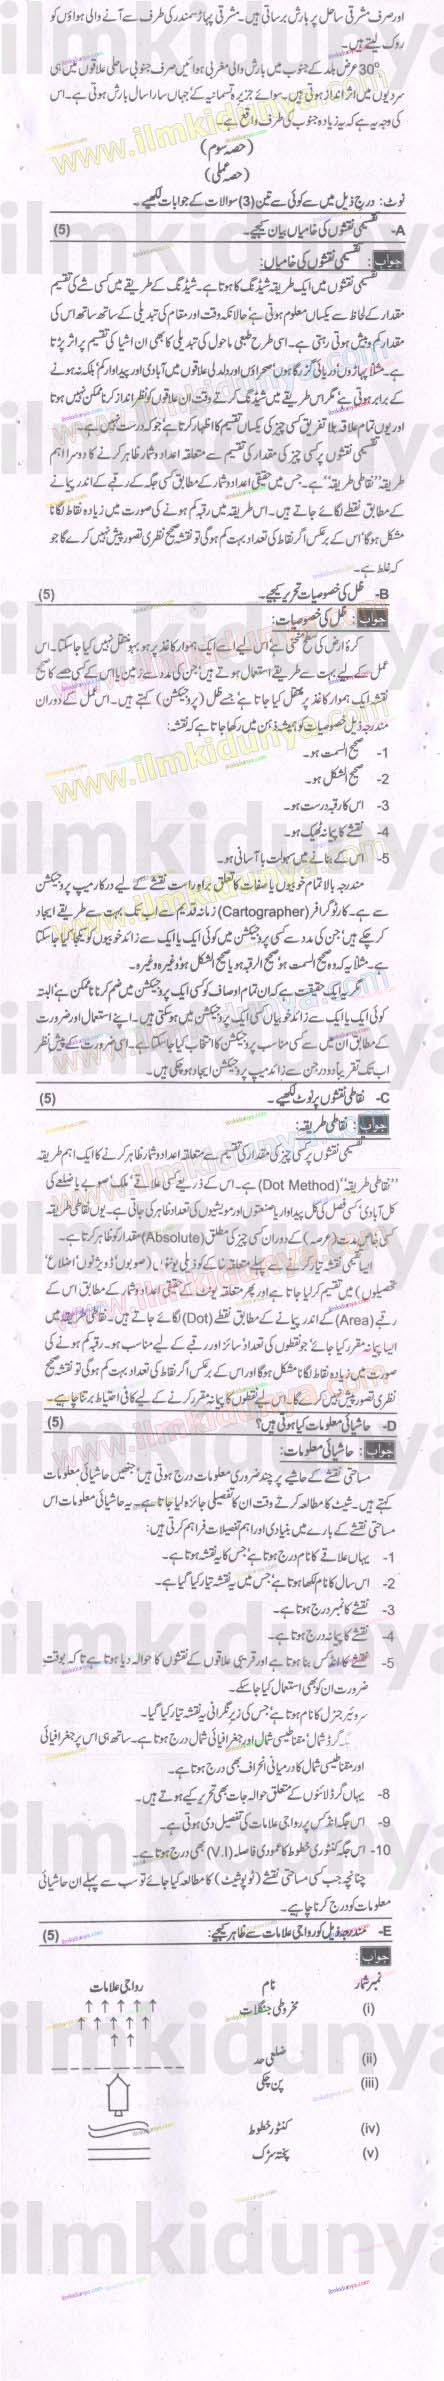 اور صرف مشرقی ساحل پر بارش برساتی ہیں۔ مشرقی پہاڑ سمندر کی طرف سے آنے والی ہواؤں کو
روک لیتے ہیں۔
30° عرض بلد کے جنوب میں بارش والی مغربی ہوائیں صرف جنوبی ساحلی علاقوں میں ہی
سردیوں میں اثر انداز ہوتی ہیں۔ سوائے جزیرہ تسمانیہ کے' جہاں سارا سال بارش ہوتی ہے۔ اس
کی وجہ یہ ہے کہ یہ زیادہ جنوب کی طرف واقع ہے۔
(حصہ سوم)
(حصہ عملی)
نوٹ: درج ذیل میں سے کوئی سے تین (3) سوالات کے جوابات لکھیے۔
A- تقسیمی نقشوں کی خامیاں بیان کیجیے۔ (5)
جواب : تقسیمی نقشوں کی خامیاں:
تقسیمی نقشوں میں ایک طریقہ شیڈنگ کا ہوتا ہے۔ شیڈنگ کے طریقے میں کسی شے کی تقسیم
مقدار کے لحاظ سے یکساں معلوم ہوتی ہے' حالانکہ وقت اور مقام کی تبدیلی کے ساتھ ساتھ اس کی
مقدار کم و بیش ہوتی رہتی ہے۔ اسی طرح طبعی ماحول کی تبدیلی کا بھی ان اشیا کی تقسیم پر اثر پڑتا
ہے۔ مثلاً پہاڑوں' دریائی گزرگاہوں' صحراؤں اور دلدلی علاقوں میں آبادی اور پیداوار کم' بلکہ نہ ہونے
کے برابر ہوتی ہے' مگر اس طریقے میں شیڈنگ کرتے وقت ان علاقوں کو نظر انداز کرنا ممکن نہیں ہوتا
اور یوں تمام علاقہ بلا تفریق کسی چیز کی یکساں تقسیم کا اظہار کرتا ہے' جو کہ درست نہیں ہے۔
تقسیمی نقشوں پر کسی چیز کی مقدار کی تقسیم سے متعلقہ اعداد و شمار ظاہر کرنے کا دوسرا اہم
طریقہ "نقاطی طریقہ" ہے۔ جس میں حقیقی اعداد و شمار کے مطابق کسی جگہ کے رقبے کے اندر پیمانے
کے مطابق نقطے لگائے جاتے ہیں۔ اس طریقہ میں رقبہ کم ہونے کی صورت میں زیادہ نقاط لگانا
مشکل ہوگا' اس کے برعکس اگر نقاط کی تعداد بہت کم ہوگی تو نقشہ صحیح نظری تصور پیش نہیں کرے گا' جو
کہ غلط ہے۔
B- ظل کی خصوصیات تحریر کیجیے۔ (5)
جواب : ظل کی خصوصیات:
کرۂ ارض کی سطح منحنی ہے' اس لیے اسے ایک ہموار کاغذ پر ہوبہو منتقل نہیں کیا جا سکتا۔ اس
عمل کے لیے بہت سے طریقے استعمال ہوتے ہیں' جن کی مدد سے زمین یا اس کے کسی حصے کا صحیح
نقشہ ایک ہموار کاغذ پر منتقل کیا جاتا ہے' جسے ظل (پروجیکشن) کہتے ہیں۔ اس عمل کے دوران
مندرجہ ذیل خصوصیات کو ہمیشہ ذہن میں رکھا جاتا ہے کہ نقشہ:
1- صحیح السمت ہو۔
2- صحیح الشکل ہو۔
3- اس کا رقبہ درست ہو۔
4- نقشے کا پیمانہ ٹھیک ہو۔
5- اس کے بنانے میں سہولت یا آسانی ہو۔
مندرجہ بالا تمام خوبیوں یا صفات کا تعلق براہ راست نقشے کے لیے درکار میپ پروجیکشن
سے ہے۔ کارٹوگرافر (Cartographer) زمانہ قدیم سے اب تک بہت سے طریقے ایجاد
کر چکے ہیں' جن کی مدد سے کسی پروجیکشن میں کوئی ایک یا ایک سے زائد خوبیوں کو یکجا کیا جا سکتا
ہے۔ مثلاً یہ کہ وہ صحیح السمت ہو' صحیح الرقبہ ہو یا صحیح الشکل ہو' وغیرہ وغیرہ۔
مگر یہ ایک حقیقت ہے کہ ان تمام اوصاف کو کسی ایک پروجیکشن میں ضم کرنا ناممکن ہے' البتہ
کوئی ایک یا ایک سے زائد خوبیاں کسی ایک پروجیکشن میں ہو سکتی ہیں۔ اپنے استعمال اور ضرورت
کے مطابق ان میں سے کسی مناسب پروجیکشن کا انتخاب کیا جا سکتا ہے۔ اسی ضرورت کے پیش نظر
اب تک تقریباً دو درجن سے زائد میپ پروجیکشن ایجاد ہو چکی ہیں۔
C- نقاطی نقشوں پر نوٹ لکھیے۔ (5)
جواب : نقاطی طریقہ:
تقسیمی نقشوں پر کسی چیز کی مقدار کی تقسیم سے متعلقہ اعداد و شمار ظاہر کرنے کا ایک اہم طریقہ
"نقاطی طریقہ" (Dot Method) ہے۔ اس کے ذریعے کسی علاقے' ملک' صوبے یا ضلعے کی
کل آبادی' کسی فصل کی کل پیداوار یا صنعتوں اور مویشیوں کی تعداد ظاہر کی جاتی ہے۔ یوں نقاطی طریقہ
کسی خاص مدت (عرصہ) کے دوران کسی چیز کی مطلق (Absolute) مقدار کو ظاہر کرتا ہے۔
ایسا تقسیمی نقشہ تیار کرنے سے پہلے متعلقہ خاکہ کو ذیلی یونٹوں (صوبوں' ڈویژنوں' اضلاع'
تحصیلوں) میں تقسیم کر لیا جاتا ہے اور پھر متعلقہ یونٹ کے حقیقی اعداد و شمار کے مطابق اس کے
رقبے (Area) کے اندر پیمانے کے مطابق نقطے (Dot) لگائے جاتے ہیں۔ نقاطی طریقہ میں
ایسا پیمانہ مقرر کیا جائے' جو نقطوں کی تعداد' سائز اور رقبے کے لیے مناسب ہو۔ رقبہ کم ہونے کی
صورت میں زیادہ نقاط لگانا مشکل ہوگا اور اس کے برعکس اگر نقاط کی تعداد بہت کم ہوگی تو نقشہ صحیح
نظری تصور پیش نہیں کرے گا۔ اس لیے نقطوں کا پیمانہ مقرر کرنے کے لیے کافی احتیاط برتنا چاہیے۔
D- حاشیائی معلومات کیا ہوتی ہیں؟ (5)
جواب : حاشیائی معلومات:
مساحتی نقشے کے حاشیے پر چند ضروری معلومات درج ہوتی ہیں' جنھیں حاشیائی معلومات
کہتے ہیں۔ شیٹ کا مطالعہ کرتے وقت ان کا تفصیلی جائزہ لیا جاتا ہے۔ یہ حاشیائی معلومات اس
مساحتی نقشے کے بارے میں بنیادی اور اہم تفصیلات فراہم کرتی ہیں:
1- یہاں علاقے کا نام درج ہوتا ہے' جس کا یہ نقشہ ہوتا ہے۔
2- اس سال کا نام لکھا ہوتا ہے' جس میں یہ نقشہ تیار کیا گیا ہے۔
3- نقشے کا نمبر درج ہوتا ہے۔
4- نقشے کا پیمانہ درج ہوتا ہے۔
5- نقشے کا انڈکس بنا ہوتا ہے اور قریبی علاقوں کے نقشوں کا حوالہ دیا ہوتا ہے تاکہ بوقت
ضرورت ان کو بھی استعمال کیا جا سکے۔
سرویئر جنرل کا نام ہوتا ہے' جس کی زیر نگرانی یہ نقشہ تیار کیا گیا۔
گرڈ شمال' مقناطیسی شمال اور جغرافیائی شمال درج ہوتا ہے۔ ساتھ ہی اس پر جغرافیائی
اور مقناطیسی شمال کا درمیانی انحراف بھی درج ہوتا ہے۔
8- یہاں گرڈ لائنوں کے متعلق حوالہ جات بھی تحریر کیے ہوتے ہیں۔
9- اس جگہ انڈکس پر رواجی علامات کی تفصیل دی ہوتی ہے۔
10- اس جگہ کنٹوری خطوط کا عمودی فاصلہ (V.I) بھی درج ہوتا ہے۔
چنانچہ جب کسی مساحتی نقشے (ٹوپو شیٹ) کا مطالعہ کیا جائے تو سب سے پہلے ان حاشیائی
معلومات کو درج کرنا چاہیے۔
E- مندرجہ ذیل کو رواجی علامات سے ظاہر کیجیے: (5)
جواب :
نمبر شمار نام رواجی علامات
(i) مخروطی جنگلات
(ii) ضلعی حد
(iii) پن چکی
(iv) کنٹور خطوط
(v) پختہ سڑک
ilmkidunya
www.ilmkidunya.com